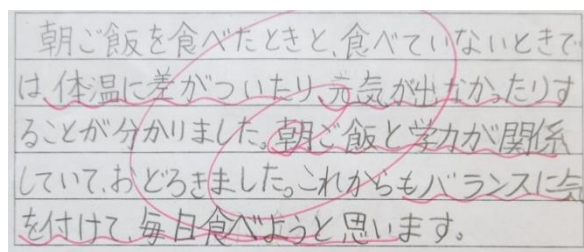 朝ご飯を食べたときと、食べていないときで
は、体温に差がついたり、元気が出なかったりす
ることが分かりました。朝ご飯と学力が関係
していて、おどろきました。これからもバランスに気
を付けて、毎日食べようと思います。